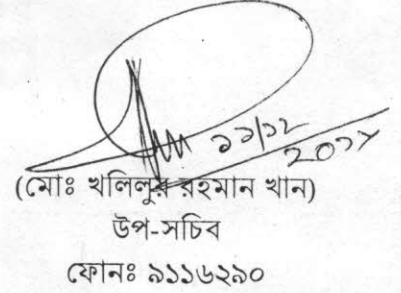 ১১/১২
২০১১
(মোঃ খলিলুর রহমান খান)
উপ-সচিব
ফোনঃ ৯১১৬২৯০